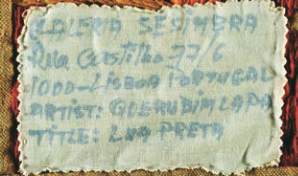 GALERIA SESIMBRA
Rua Castilho 77/6
1000-LISBOA PORTUGAL
ARTIST: QUERUBIM LAPA
TITLE: LUA PRETA